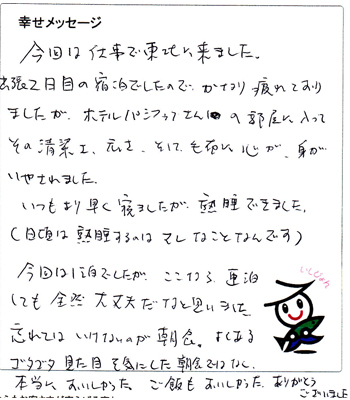 幸せメッセージ
今回は仕事で東北に来ました。
出張2日目の宿泊でしたので、かなり疲れており
ましたが、ホテルパシフィックさんの部屋に入って
その清潔さ、広さ、そして毛布に心が、身が
いやされました。
いつもより早く寝ましたが熟睡できました。
(日頃は熟睡するのはマレなことなんです)
今回は1泊でしたが、ここなら、連泊
しても全然大丈夫だなと思いました
忘れてはいけないのが朝食。よくある
ゴタゴタ見た目を気にした朝食ではなく、
本当においしかった。ご飯もおいしかった。ありがとう
ございました